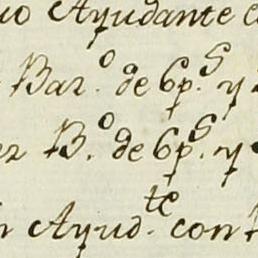 uo Ayudante c
Bar.º de 6p.s y
ez B.º de 6p.s y
n Ayud.te con